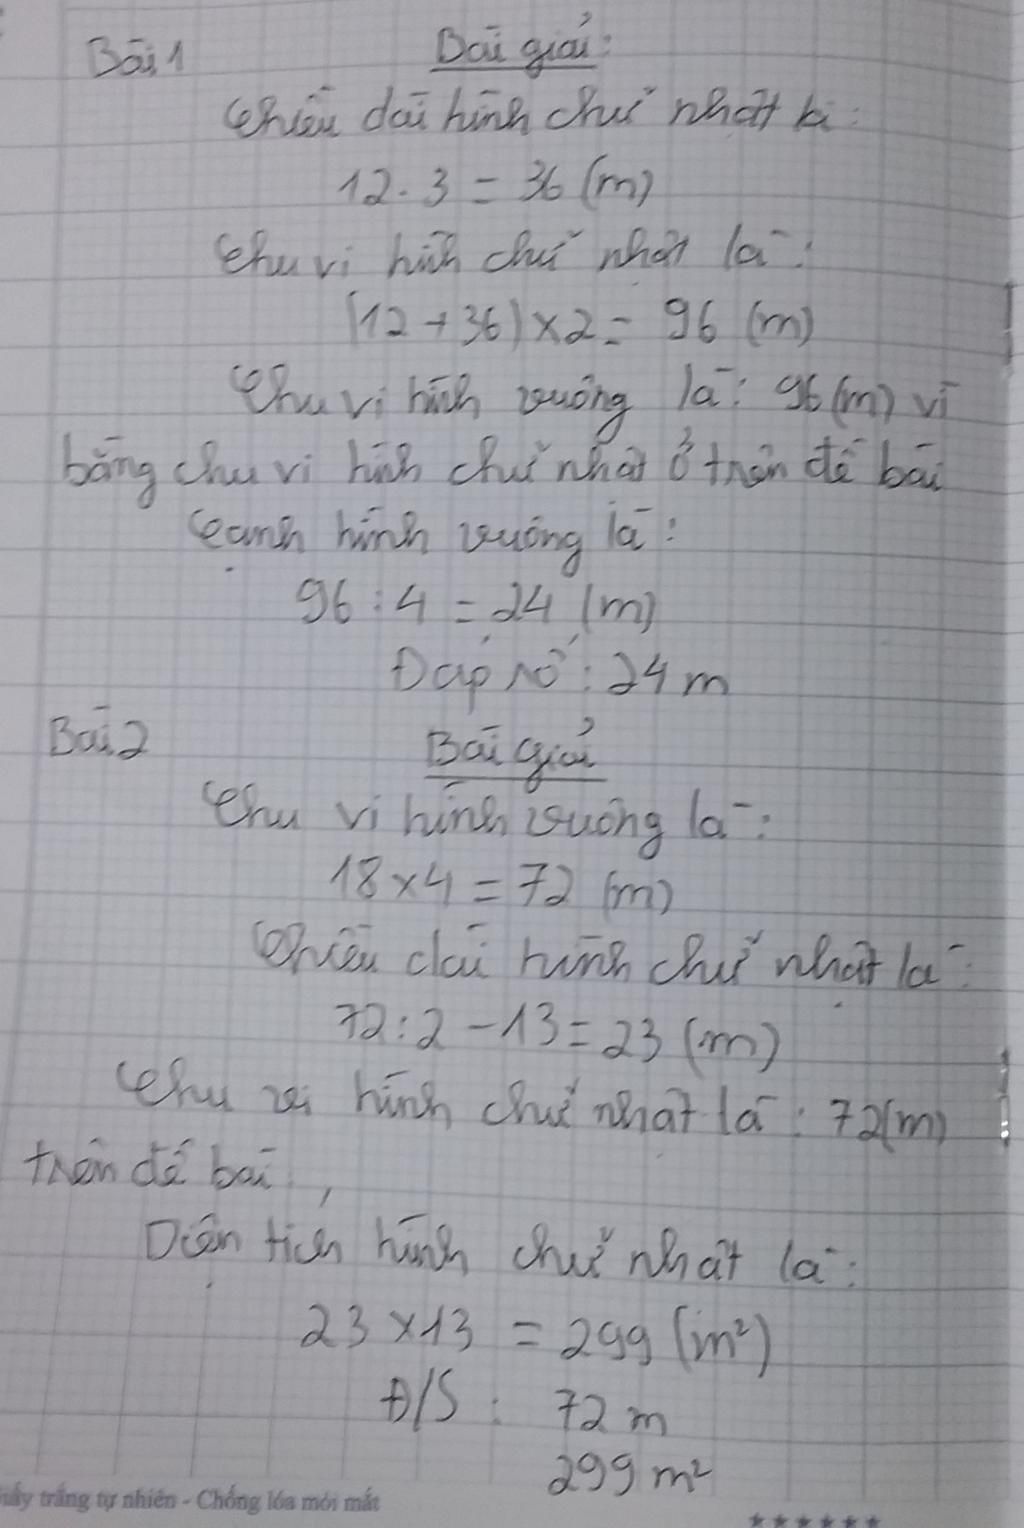 Bài 1
Bài giải:
Chiều dài hình chữ nhật là:
12.3 = 36 (m)
Chu vi hình chữ nhật là:
(12 + 36) x 2 = 96 (m)
Chu vi hình vuông là: 96 (m) vì
bằng chu vi hình chữ nhật ở trên đề bài
Cạnh hình vuông là:
96 : 4 = 24 (m)
Đáp số: 24 m
Bài 2
Bài giải
Chu vi hình vuông là:
18 x 4 = 72 (m)
Chiều dài hình chữ nhật là:
72 : 2 - 13 = 23 (m)
Chu vi hình chữ nhật là: 72 (m)
trên đề bài,
Diện tích hình chữ nhật là:
23 x 13 = 299 (m²)
Đ/S : 72 m
299 m²
Giấy trắng tự nhiên - Chống lóa mỏi mắt